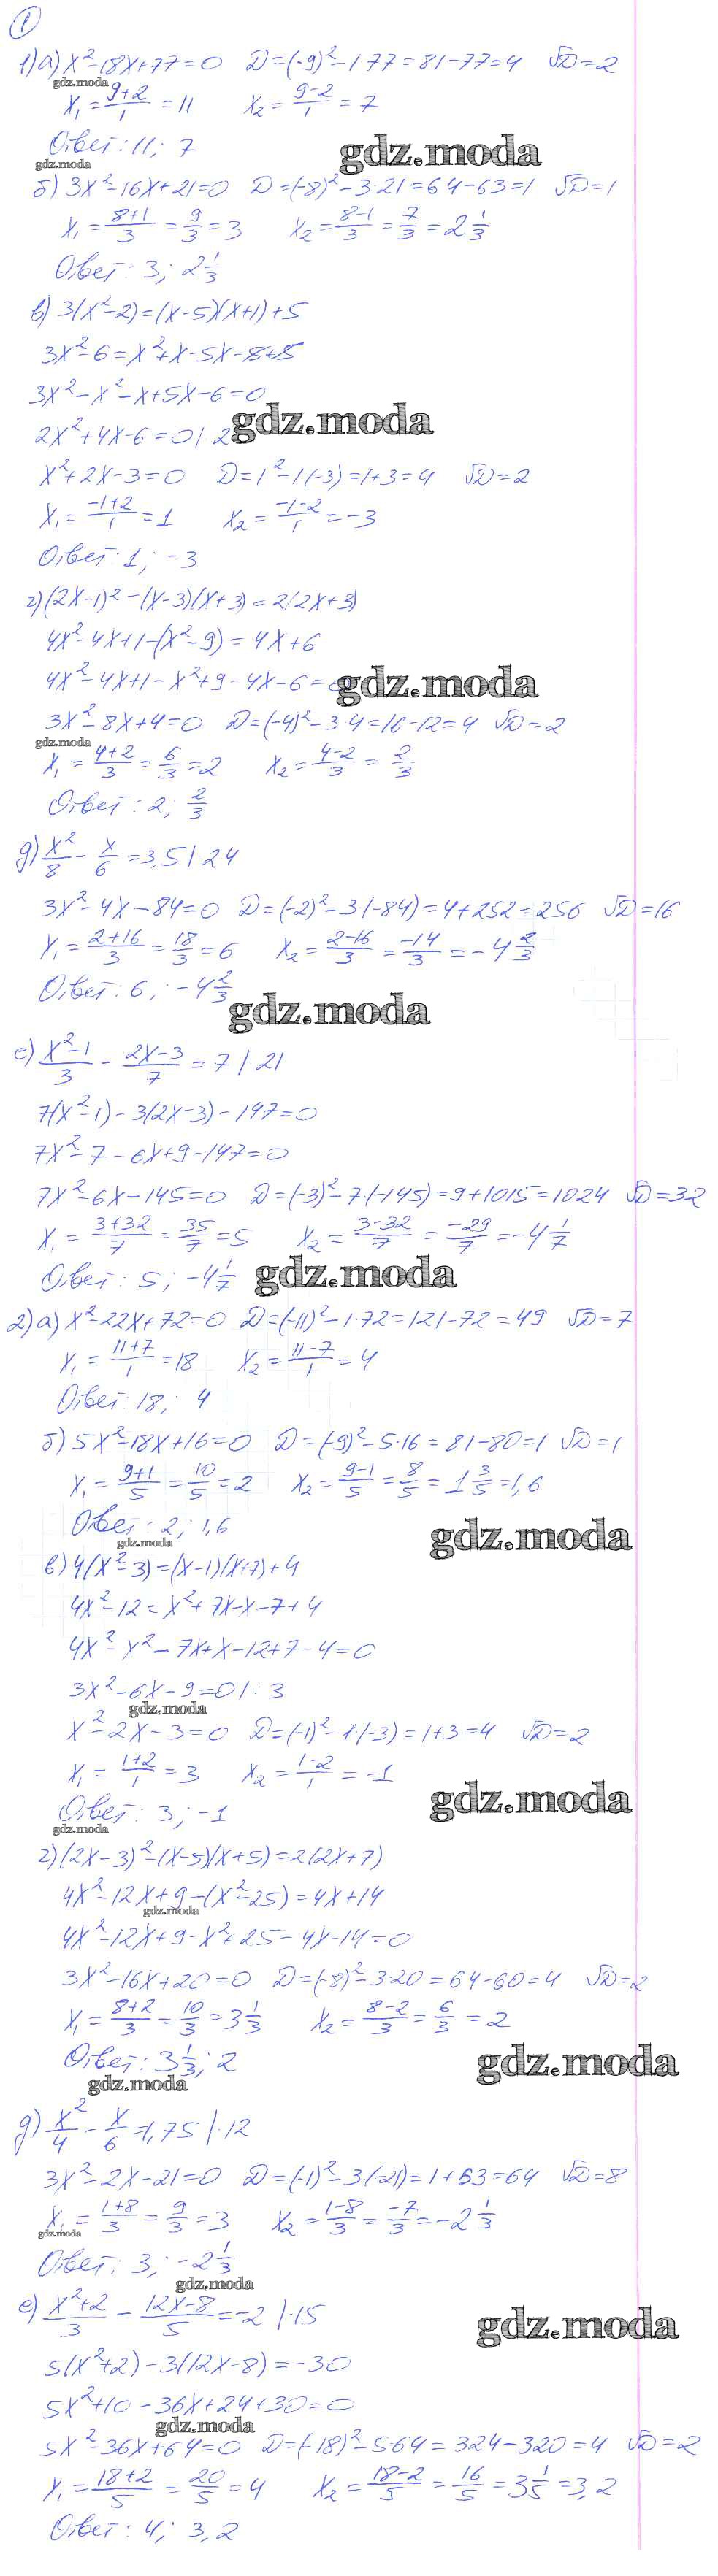 1
1) а) x²-18x+77=0 D=(-9)²-1·77=81-77=4 √D=2
gdz.moda
x₁=(9+2)/1=11 x₂=(9-2)/1=7
Ответ: 11; 7
gdz.moda
gdz.moda
б) 3x²-16x+21=0 D=(-8)²-3·21=64-63=1 √D=1
x₁=(8+1)/3=9/3=3 x₂=(8-1)/3=7/3=2 1/3
Ответ: 3; 2 1/3
в) 3(x²-2)=(x-5)(x+1)+5
3x²-6=x²+x-5x-5+5
3x²-x²-x+5x-6=0
gdz.moda
2x²+4x-6=0 | 2
x²+2x-3=0 D=1²-1(-3)=1+3=4 √D=2
x₁=(-1+2)/1=1 x₂=(-1-2)/1=-3
Ответ: 1; -3
г) (2x-1)²-(x-3)(x+3)=2(2x+3)
4x²-4x+1-(x²-9)=4x+6
4x²-4x+1-x²+9-4x-6=
gdz.moda
3x²-8x+4=0 D=(-4)²-3·4=16-12=4 √D=2
gdz.moda
x₁=(4+2)/3=6/3=2 x₂=(4-2)/3=2/3
Ответ: 2; 2/3
д) x²/8-x/6=3,5 | 24
3x²-4x-84=0 D=(-2)²-3(-84)=4+252=256 √D=16
x₁=(2+16)/3=18/3=6 x₂=(2-16)/3=-14/3=-4 2/3
Ответ: 6; -4 2/3
gdz.moda
е) (x²-1)/3-(2x-3)/7=7 | 21
7(x²-1)-3(2x-3)-147=0
7x²-7-6x+9-147=0
7x²-6x-145=0 D=(-3)²-7·(-145)=9+1015=1024 √D=32
x₁=(3+32)/7=35/7=5 x₂=(3-32)/7=-29/7=-4 1/7
Ответ: 5; -4 1/7
gdz.moda
2) а) x²-22x+72=0 D=(-11)²-1·72=121-72=49 √D=7
x₁=(11+7)/1=18 x₂=(11-7)/1=4
Ответ: 18; 4
б) 5x²-18x+16=0 D=(-9)²-5·16=81-80=1 √D=1
x₁=(9+1)/5=10/5=2 x₂=(9-1)/5=8/5=1 3/5=1,6
Ответ: 2; 1,6
gdz.moda
gdz.moda
в) 4(x²-3)=(x-1)(x+7)+4
4x²-12=x²+7x-x-7+4
4x²-x²-7x+x-12+7-4=0
3x²-6x-9=0 |:3
gdz.moda
x²-2x-3=0 D=(-1)²-1·(-3)=1+3=4 √D=2
x₁=(1+2)/1=3 x₂=(1-2)/1=-1
Ответ: 3; -1
gdz.moda
gdz.moda
г) (2x-3)²-(x-5)(x+5)=2(2x+7)
4x²-12x+9-(x²-25)=4x+14
gdz.moda
4x²-12x+9-x²+25-4x-14=0
3x²-16x+20=0 D=(-8)²-3·20=64-60=4 √D=2
x₁=(8+2)/3=10/3=3 1/3 x₂=(8-2)/3=6/3=2
Ответ: 3 1/3; 2
gdz.moda
gdz.moda
д) x²/4-x/6=1,75 |·12
3x²-2x-21=0 D=(-1)²-3(-21)=1+63=64 √D=8
x₁=(1+8)/3=9/3=3 x₂=(1-8)/3=-7/3=-2 1/3
gdz.moda
Ответ: 3; -2 1/3
gdz.moda
е) (x²+2)/3-(12x-8)/5=-2 |·15
gdz.moda
5(x²+2)-3(12x-8)=-30
5x²+10-36x+24+30=0
gdz.moda
5x²-36x+64=0 D=(-18)²-5·64=324-320=4 √D=2
x₁=(18+2)/5=20/5=4 x₂=(18-2)/5=16/5=3 1/5=3,2
Ответ: 4; 3,2